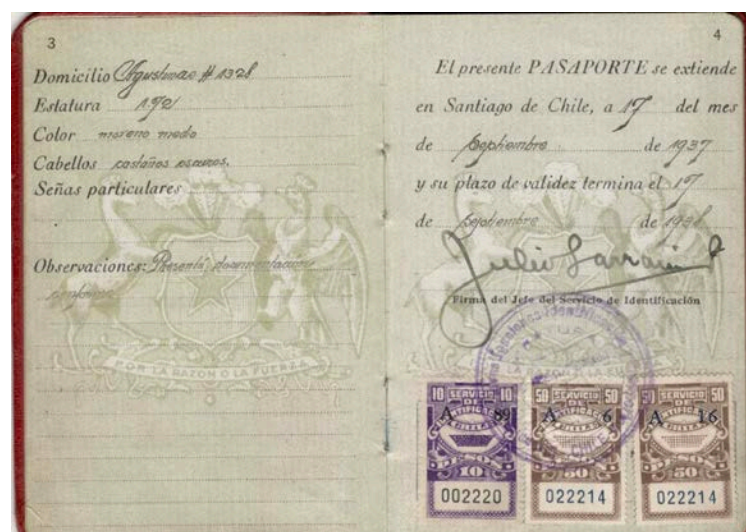 3
Domicilio Agustinas # 1328
Estatura 1.72
Color moreno medio
Cabellos castaños oscuros.
Señas particulares
Observaciones: Presentó documentación
conforme
POR LA RAZON O LA FUERZA
4
El presente PASAPORTE se extiende
en Santiago de Chile, a 17 del mes
de Septiembre de 1937
y su plazo de validez termina el 17
de Septiembre de 1938
Julio Larrain
Firma del Jefe del Servicio de Identificación
10 SERVICIO 10
DE
IDENTIFICACION
CHILE
A 89
PESOS
10
002220
50 SERVICIO 50
DE
IDENTIFICACION
CHILE
A 6
PESOS
50
022214
50 SERVICIO 50
DE
IDENTIFICACION
CHILE
A 16
PESOS
50
022214